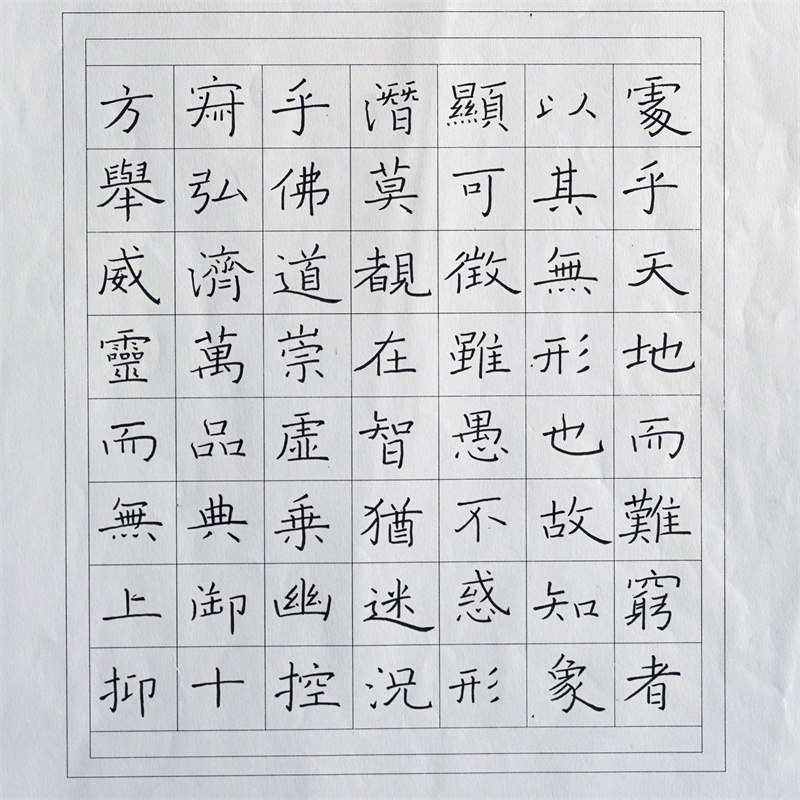 處乎天地而難窮者
以其無形也故知象
顯可徵雖愚不惑形
潛莫覩在智猶迷況
乎佛道崇虛乗幽控
寂弘濟萬品典御十
方舉威靈而無上抑